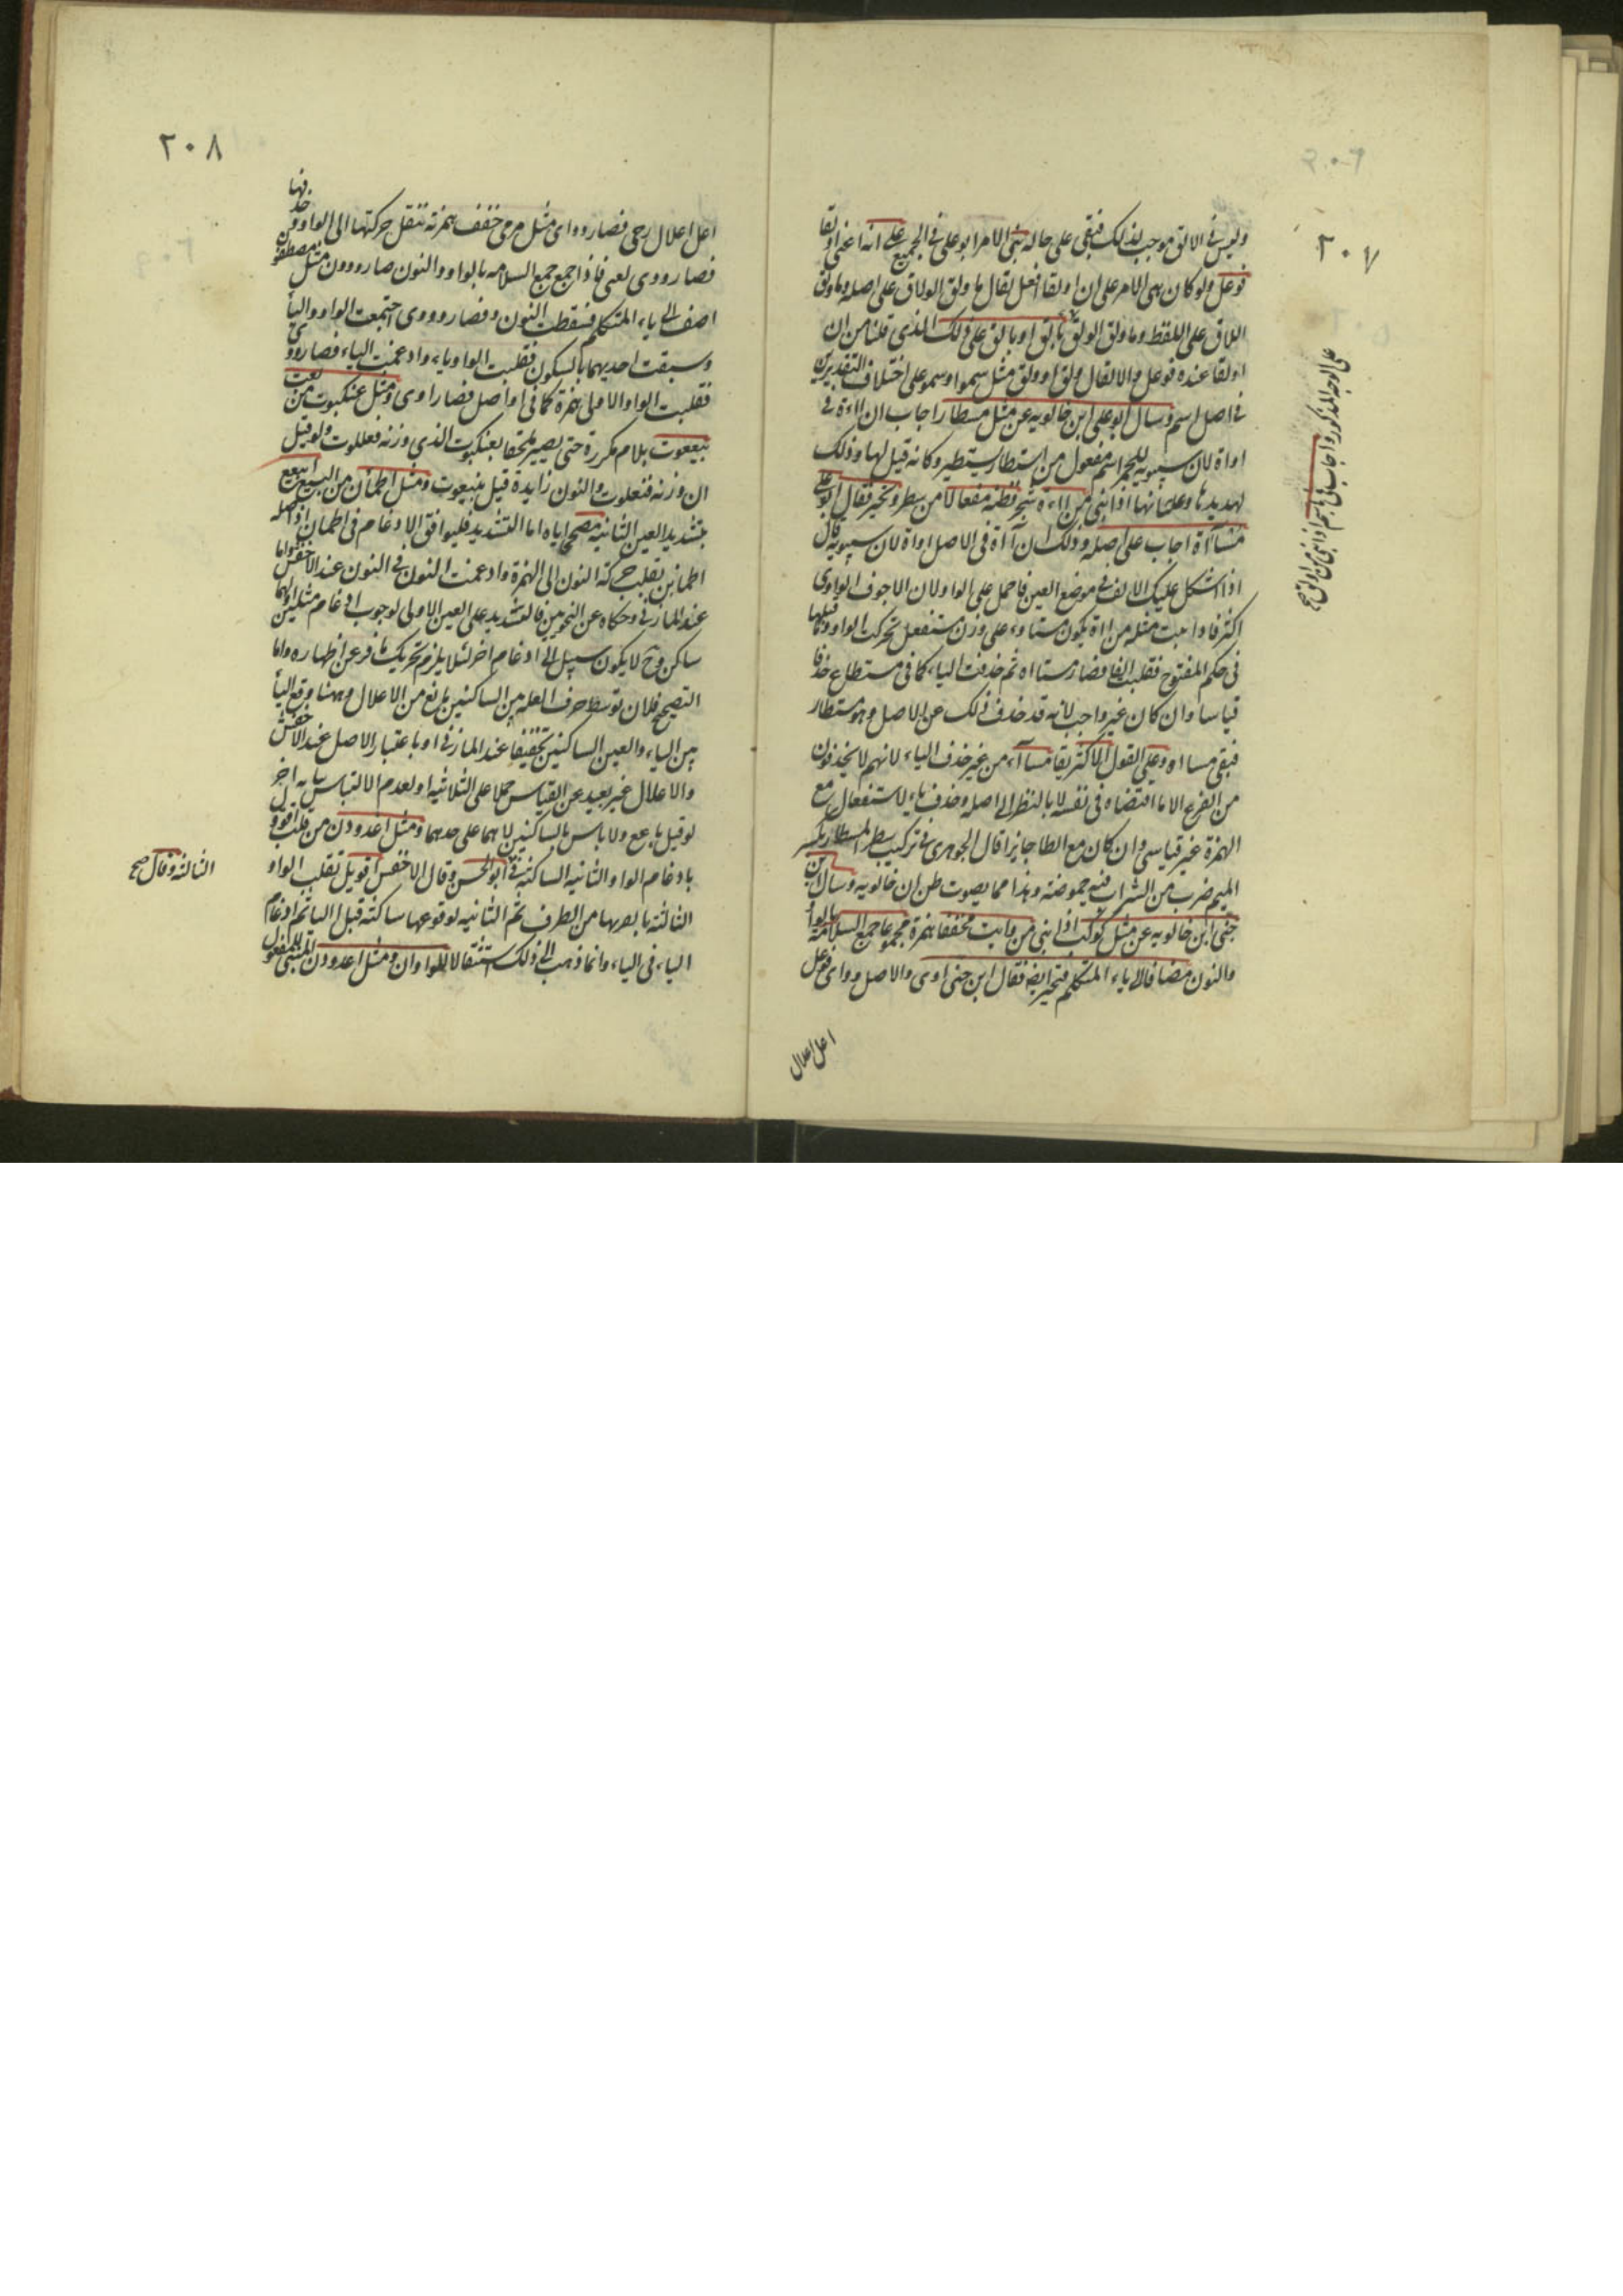 ٢٠٧
وليس في الالق موجب لذلك فبقي على حاله بنى الامر ابو علي في الجميع على انه اعني اولقا
فوعل ولو كان بنى الامر على ان اولقا افعل لقال ما ولق الولاق على اصله وما ولق
اللاق على اللفظ وما ولق الولق بالق او بالق على ذلك الذي قلنا من ان
اولقا عنده فوعل والا لقال ولق او ولق مثل سمو او سمو على اختلاف التقديرين
في اصل اسم وسال ابو علي ابن خالويه عن مثل مسطار اجاب ان ااءة في
اواة لان سيبويه اسم مفعول من استطار يستطير وكانه قيل لها وذلك
انها اذا بني من ااءة شجر فظنه مفعالا من سطر وتحير فقال ابو علي
مسااة اجاب على اصله وذلك ان ااة في الاصل اواة لان سيبويه قال
اذا اشكل عليك الالف في موضع العين فاحمل على الواو لان الاجوف الواوى
اكثر فاذا بنيت مثله من ااة يكون مستاوء على وزن مستفعل تحركت الواو وما قبلها
في حكم المفتوح فقلبت الفا فصار مستااه ثم حذفت التاء كما في مستطاع حذفا
قياسا وان كان غير واجب لانه قد حذف ذلك عن الاصل وهو مستطار
فبقي مسااه وعلى القول الاكثر يقا مسااء من غير حذف التاء لانهم لا يحذفون
من الفرع الا ما اقتضاه في نفسه لا بالنظر الى اصله وحذف تاء الاستفعال مع
الهمزة غير قياسي وان كان مع الطا جايزا قال الجوهري في تركيب سطر المسطار بكسر
الميم ضرب من الشراب فيه حموضة وهذا مما يصوت ظن ابن خالويه وسال ابن
جني ابن خالويه عن مثل كوكب اذا بني من وايت مخففا همزة مجموعا جمع السلامة بالواو
والنون مضافا الى ياء المتكلم فتحير ايضا فقال ابن جني اوى والاصل وواى فوعل
اعل اعلال
على الوجه المذكور واجاب في باسم اذا بني من اولق صح
٢٠٨
اعل اعلال رحى فصار وواى مثل مرمى خفف همزته تنقل حركتها الى الواو وحذفها
فصار ووى لعنى فاذا جمع جمع السلامه بالواو والنون صار وووون مثل مصطفون
اضف الى ياء المتكلم فسقطت النون فصار ووووى اجتمعت الواو والياء
وسبقت احديهما بالسكون فقلبت الواو ياء وادغمت الياء فصار ووى
فقلبت الواو الاولى همزة كما في اواصل فصار اوى ومثل عنكبوت من بعت
بيععوت بلام مكررة حتى يصير ملحقا بعنكبوت الذي وزنه فعللوت ولو قيل
ان وزنه فنعلوت والنون زايدة قيل بنيعوت ومثل اطمأن من البيع ابيعع
بتشديد العين الثانيه مصححا اياه اما التشديد فليوافق الادغام في اطمأن اذ اصله
اطمانن بقلب حركة النون الى الهمزة وادغمت النون في النون عند الاخفش واما
عند المازني وحكاه عن النحويين فالتشديد على العين الاولى لوجوب ادغام مثلين اولهما
ساكن وح لا يكون سبيل الى ادغام اخر لئلا يلزم تحريك ما فر عن اظهاره واما
التصحيح فلان توسط حرف العله بين الساكنين مانع من الاعلال وههنا وقع الياء
بين الباء والعين الساكنين تحقيقا عند المازني او باعتبار الاصل عند الاخفش
والاعلال غير بعيد عن القياس حملا على الثلاثيه او لعدم الالتباس بباب اخر
لو قيل باعع ولا باس بالساكنين لانهما على حدهما ومثل اغدودن من قلت اقوول
بادغام الواو الثانيه الساكنة في ابو الحسن وقال الاخفش اقويل تقلب الواو
الثالثة يا لقربها من الطرف ثم الثانيه لوقوعها ساكنة قبل اليا ثم ادغام
الياء في الياء وانما ذهب الى ذلك استثقالا للواوان ومثل اغدودن المبنى للمفعول
الثالثة وقال صح